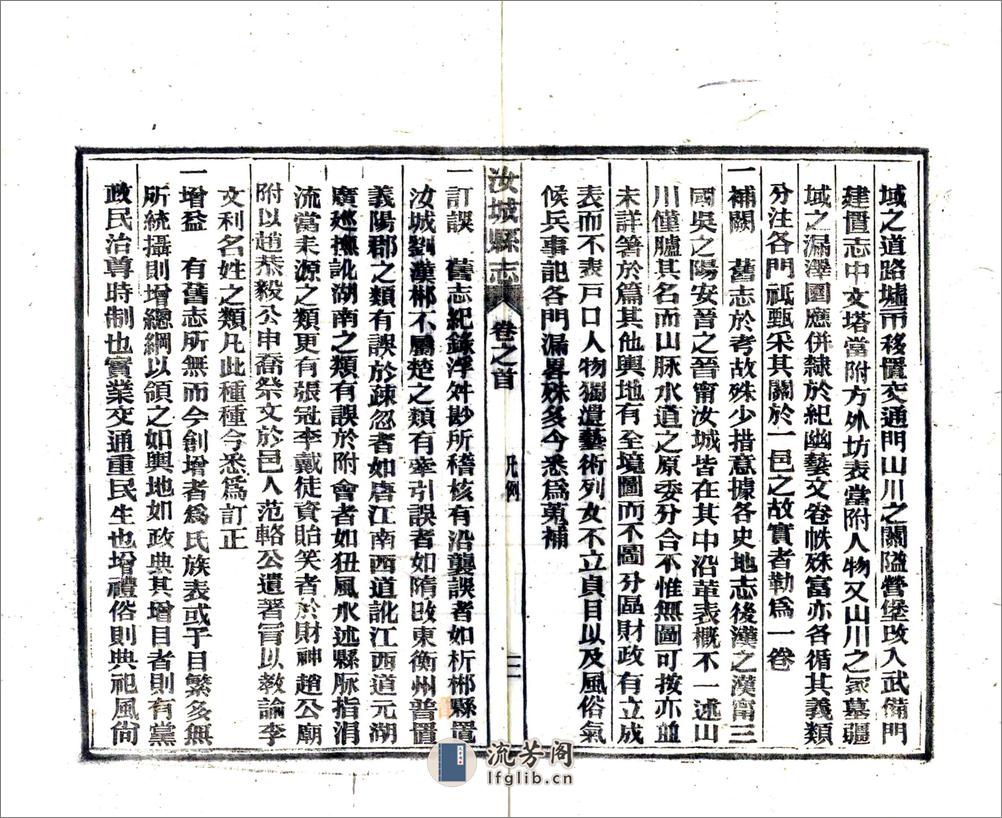 域之道路墟市移置交通門山川之關隘營堡改入武備門
建置志中文塔當附方外坊表當附人物又山川之冢墓疆
域之漏澤園應併隸於紀幽藝文卷帙殊富亦各循其義類
分注各門祇甄采其關於一邑之故實者勒爲一卷
一補闕　舊志於考故殊少措意據各史地志後漢之漢甯三
國吳之陽安晉之晉甯汝城皆在其中沿革表概不一述山
川僅臚其名而山脉水道之原委分合不惟無圖可按亦並
未詳箸於篇其他輿地有至境圖而不圖分區財政有立成
表而不表戸口人物獨遺藝術列女不立貞目以及風俗氣
候兵事記各門漏畧殊多今悉爲蒐補
汝城縣志　卷之首　凡例　三
一訂誤　舊志紀錄浮舛尠所稽核有沿襲誤者如析郴縣置
汝城劉漢郴不屬楚之類有牽引誤者如隋改東衡州普置
義陽郡之類有誤於疎忽者如唐江南西道訛江西道元湖
廣廵撫訛湖南之類有誤於附會者如狃風水述縣脉指涓
流當耒源之類更有張冠李戴徒資貽笑者於財神趙公廟
附以趙恭毅公申喬祭文於邑人范輅公遺著甯以教諭李
文利名姓之類凡此種種今悉爲訂正
一增益　有舊志所無而今創增者爲氏族表或子目繁多無
所統攝則增總綱以領之如輿地如政典其增目者則有黨
政民治尊時制也實業交通重民生也增禮俗則典祀風尙
流芳阁
lfglib.cn